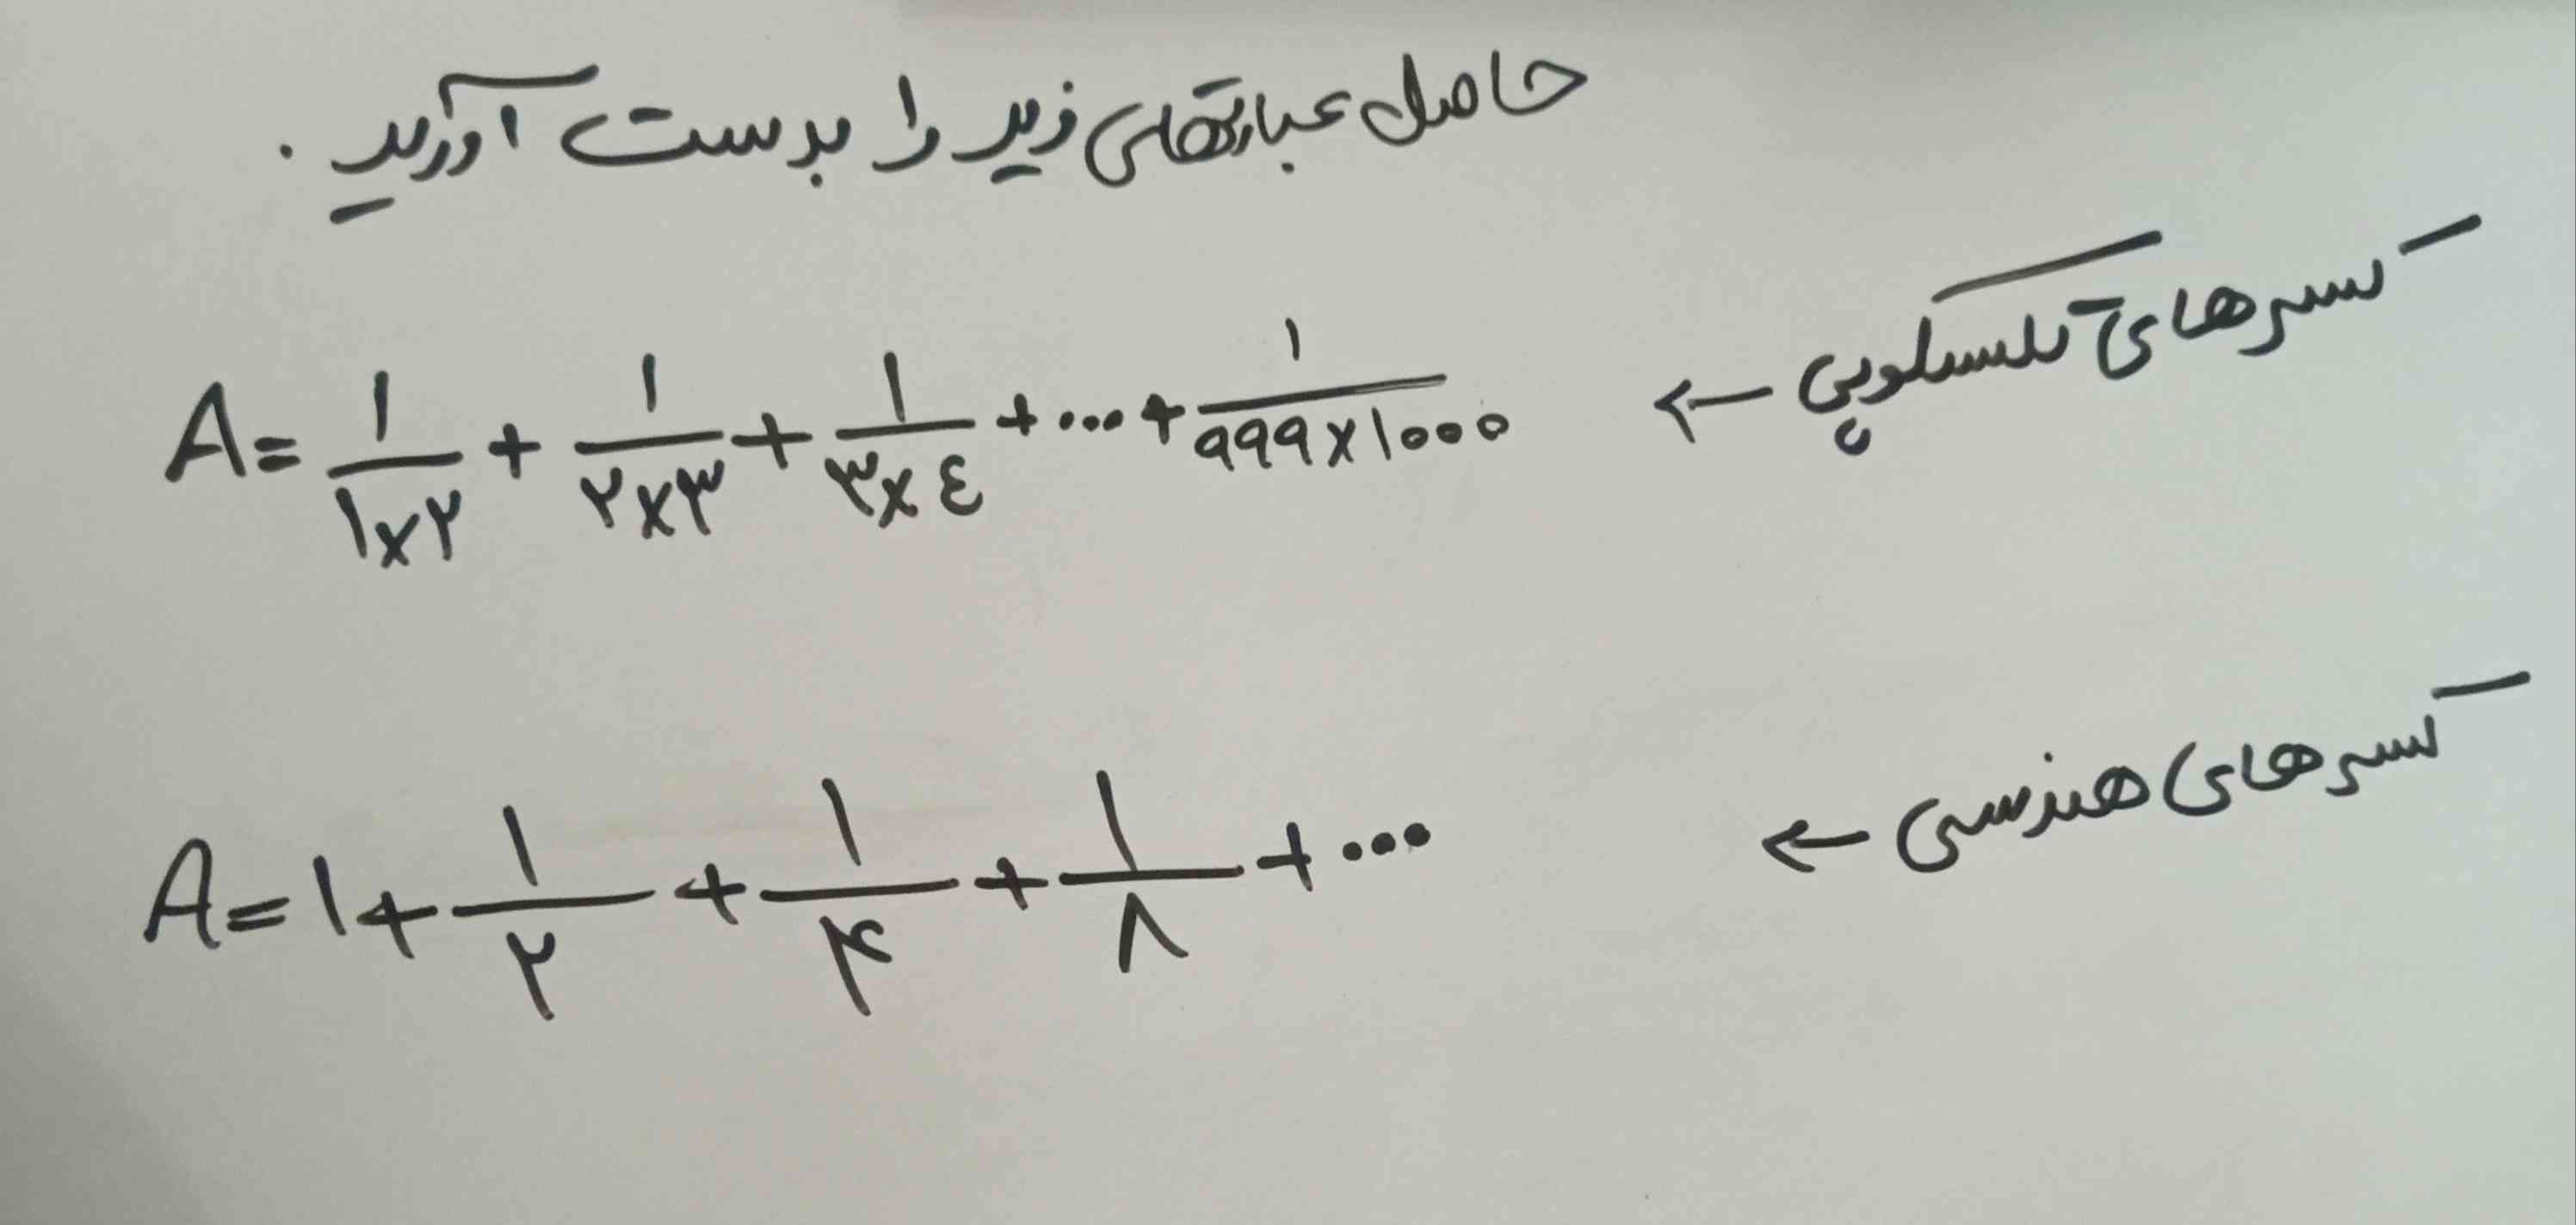 حاصل عبارتهای زیر را بدست آورید .
کسرهای تلسکوپی ←
A = ۱/۱×۲ + ۱/۲×۳ + ۱/۳×٤ + ... + ۱/۹۹۹×۱۰۰۰
کسرهای هندسی ←
A = ۱ + ۱/۲ + ۱/۴ + ۱/۸ + ...